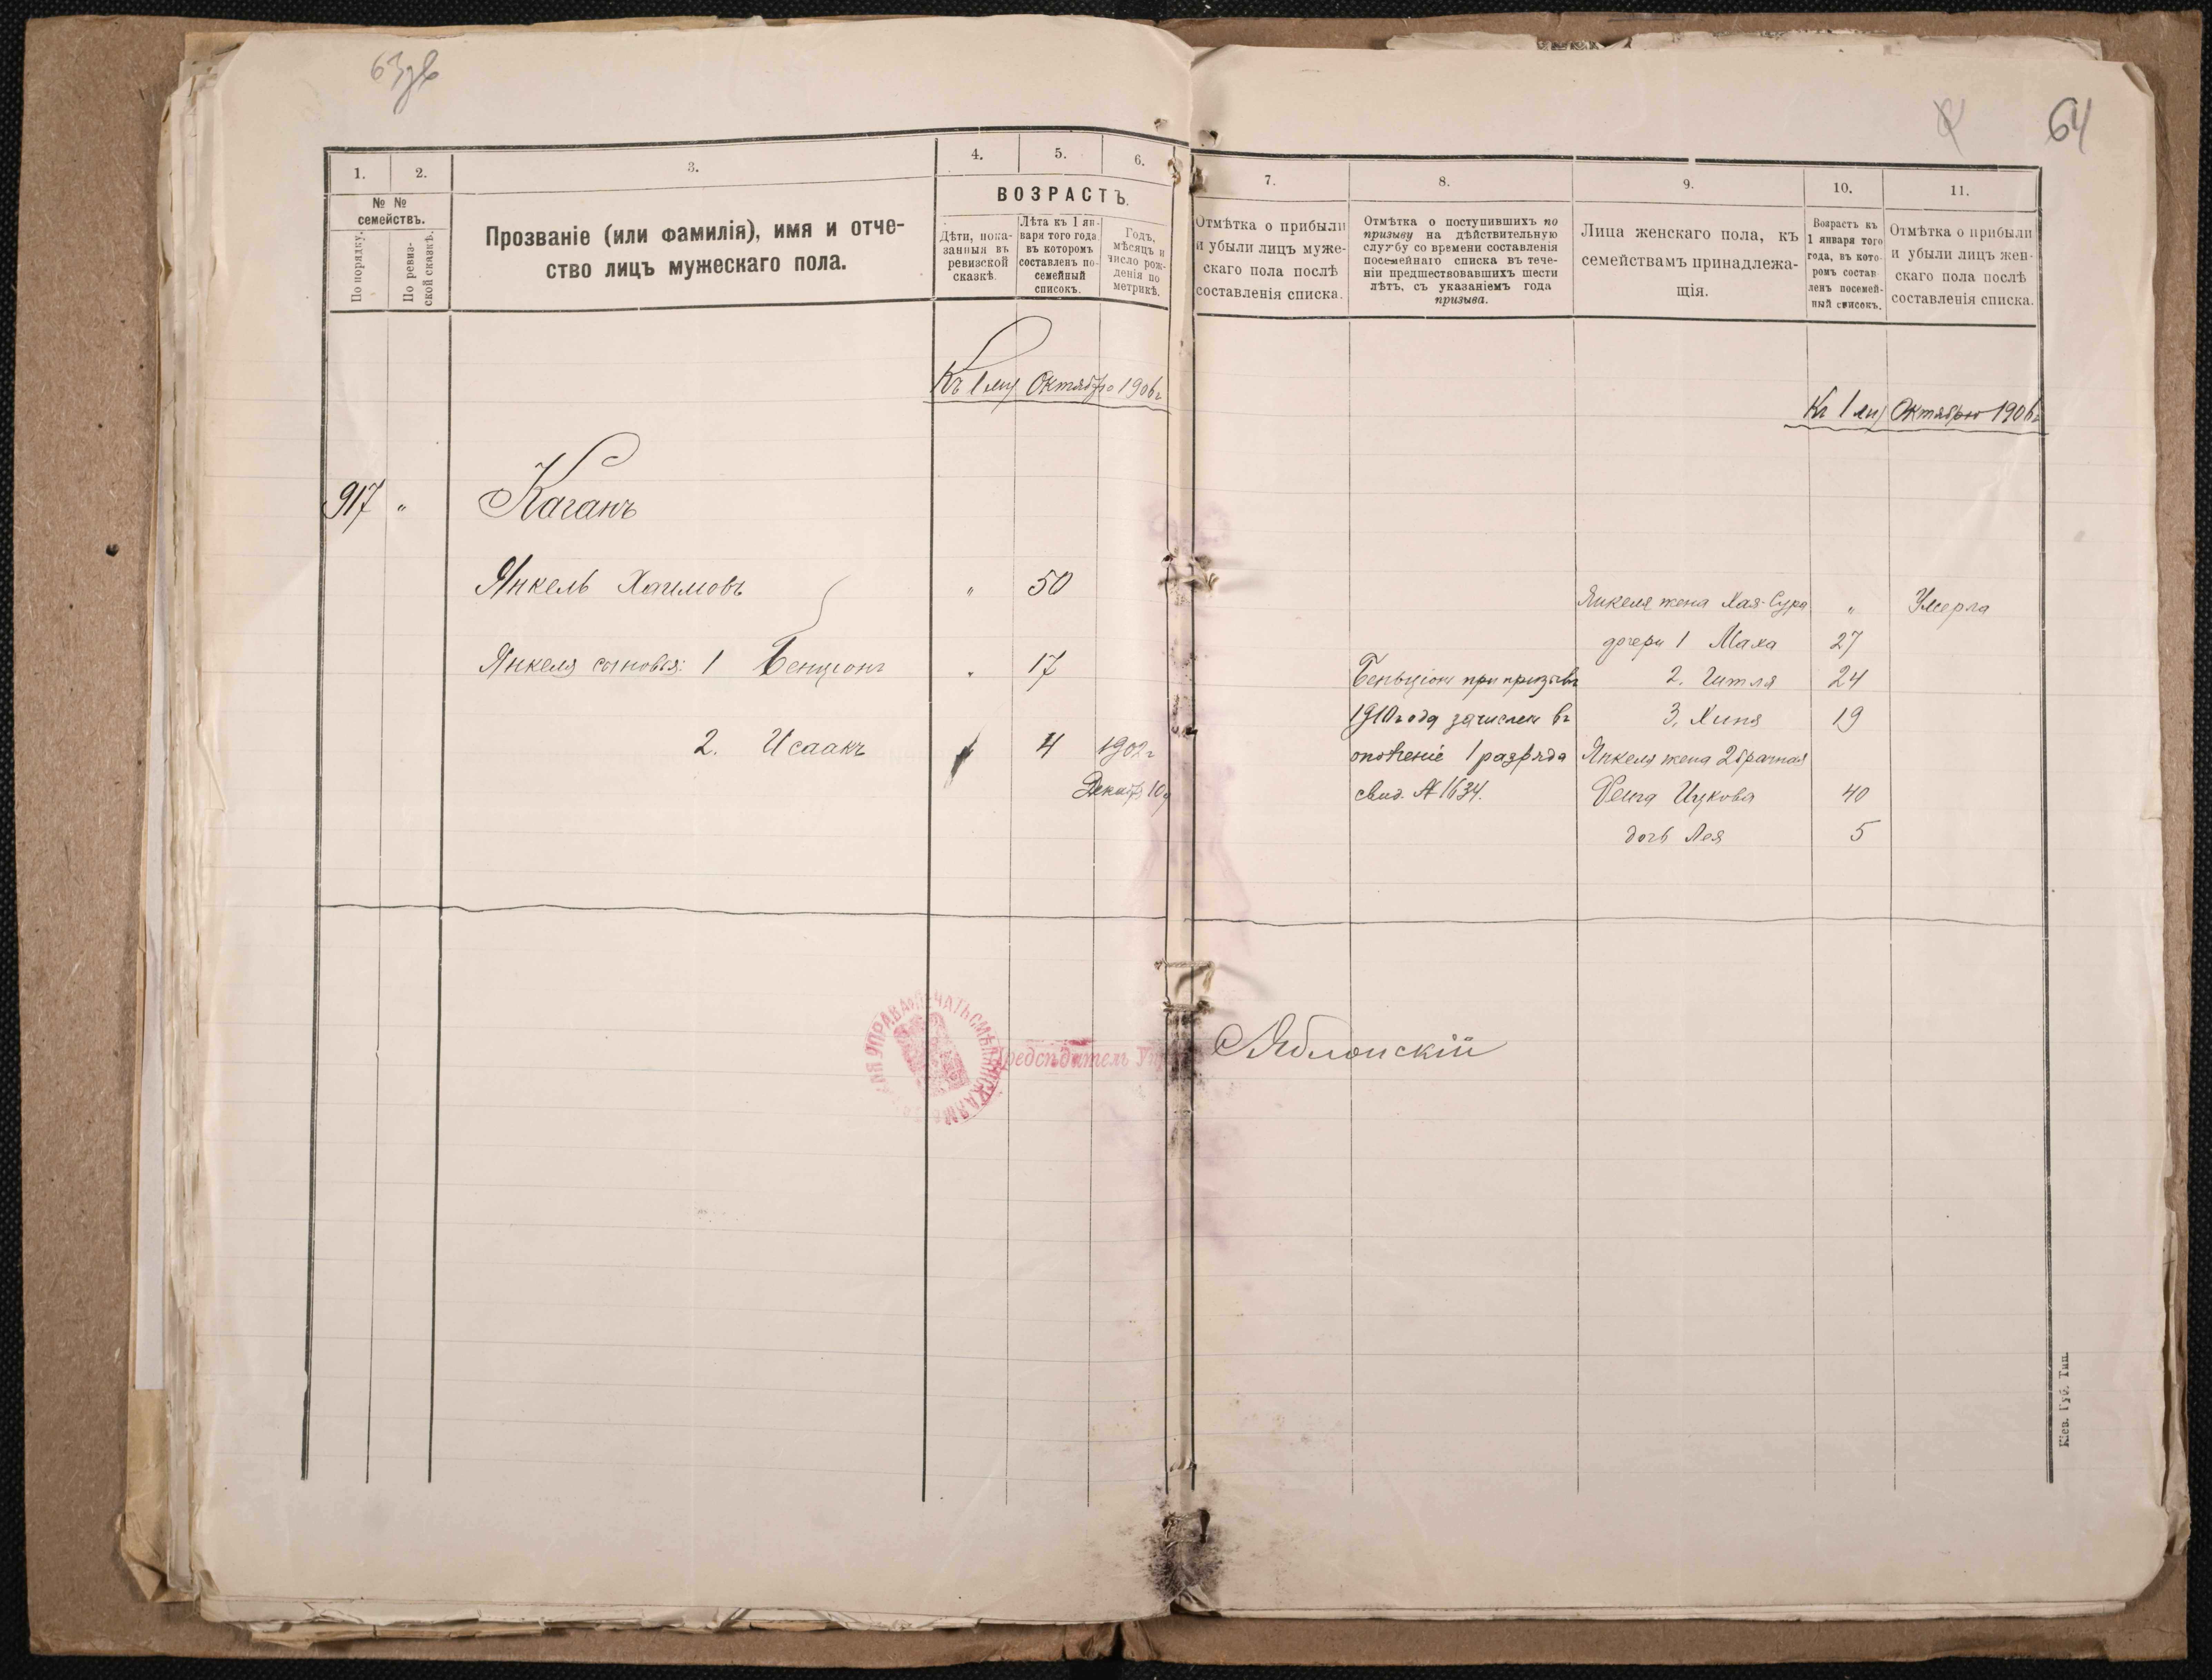 63зв
64
1.
2.
3.
4.
5.
6.
№ №
семействъ.
По порядку.
По ревиз-
ской сказкѣ.
Прозваніе (или фамилія), имя и отче-
ство лицъ мужескаго пола.
ВОЗРАСТЪ.
Дѣти, пока-
занныя въ
ревизской
сказкѣ.
Лѣта къ 1 ян-
варя того года
въ которомъ
составленъ по-
семейный
списокъ.
Годъ,
мѣсяцъ и
число рож-
денія по
метрикѣ.
7.
8.
9.
10.
11.
Отмѣтка о прибыли
и убыли лицъ муже-
скаго пола послѣ
составленія списка.
Отмѣтка о поступившихъ по
призыву на дѣйствительную
службу со времени составленія
посемейнаго списка въ тече-
ніи предшествовавшихъ шести
лѣтъ, съ указаніемъ года
призыва.
Лица женскаго пола, къ
семействамъ принадлежа-
щія.
Возрастъ къ
1 января того
года, въ кото-
ромъ состав-
ленъ посемей-
ный списокъ.
Отмѣтка о прибыли
и убыли лицъ жен-
скаго пола послѣ
составленія списка.
Къ 1 му Октябрю 1906 г
917 " Каганъ
Янкель Хаимовъ " 50
Янкеля сыновья: 1 Бенціонъ " 17
2. Исаакъ 4 1902 г
Декабр 10 д
Къ 1 му Октябрю 1906 г
Янкеля жена Хая-Сура " Умерла
дочери 1 Маха 27
2. Гитля 24
3. Хипя 19
Янкеля жена 2 брачная
Фейга Ицкова 40
дочь Лея 5
Беньціонъ при призывѣ
1910 года зачислен въ
ополченіе 1 разряда
свид. № 1634.
ПЕЧАТЬ СМѢЛЯНСКАЯ УПРАВА
Предсѣдатель Упр
Яблонскій
Кіев. Губ. Тип.